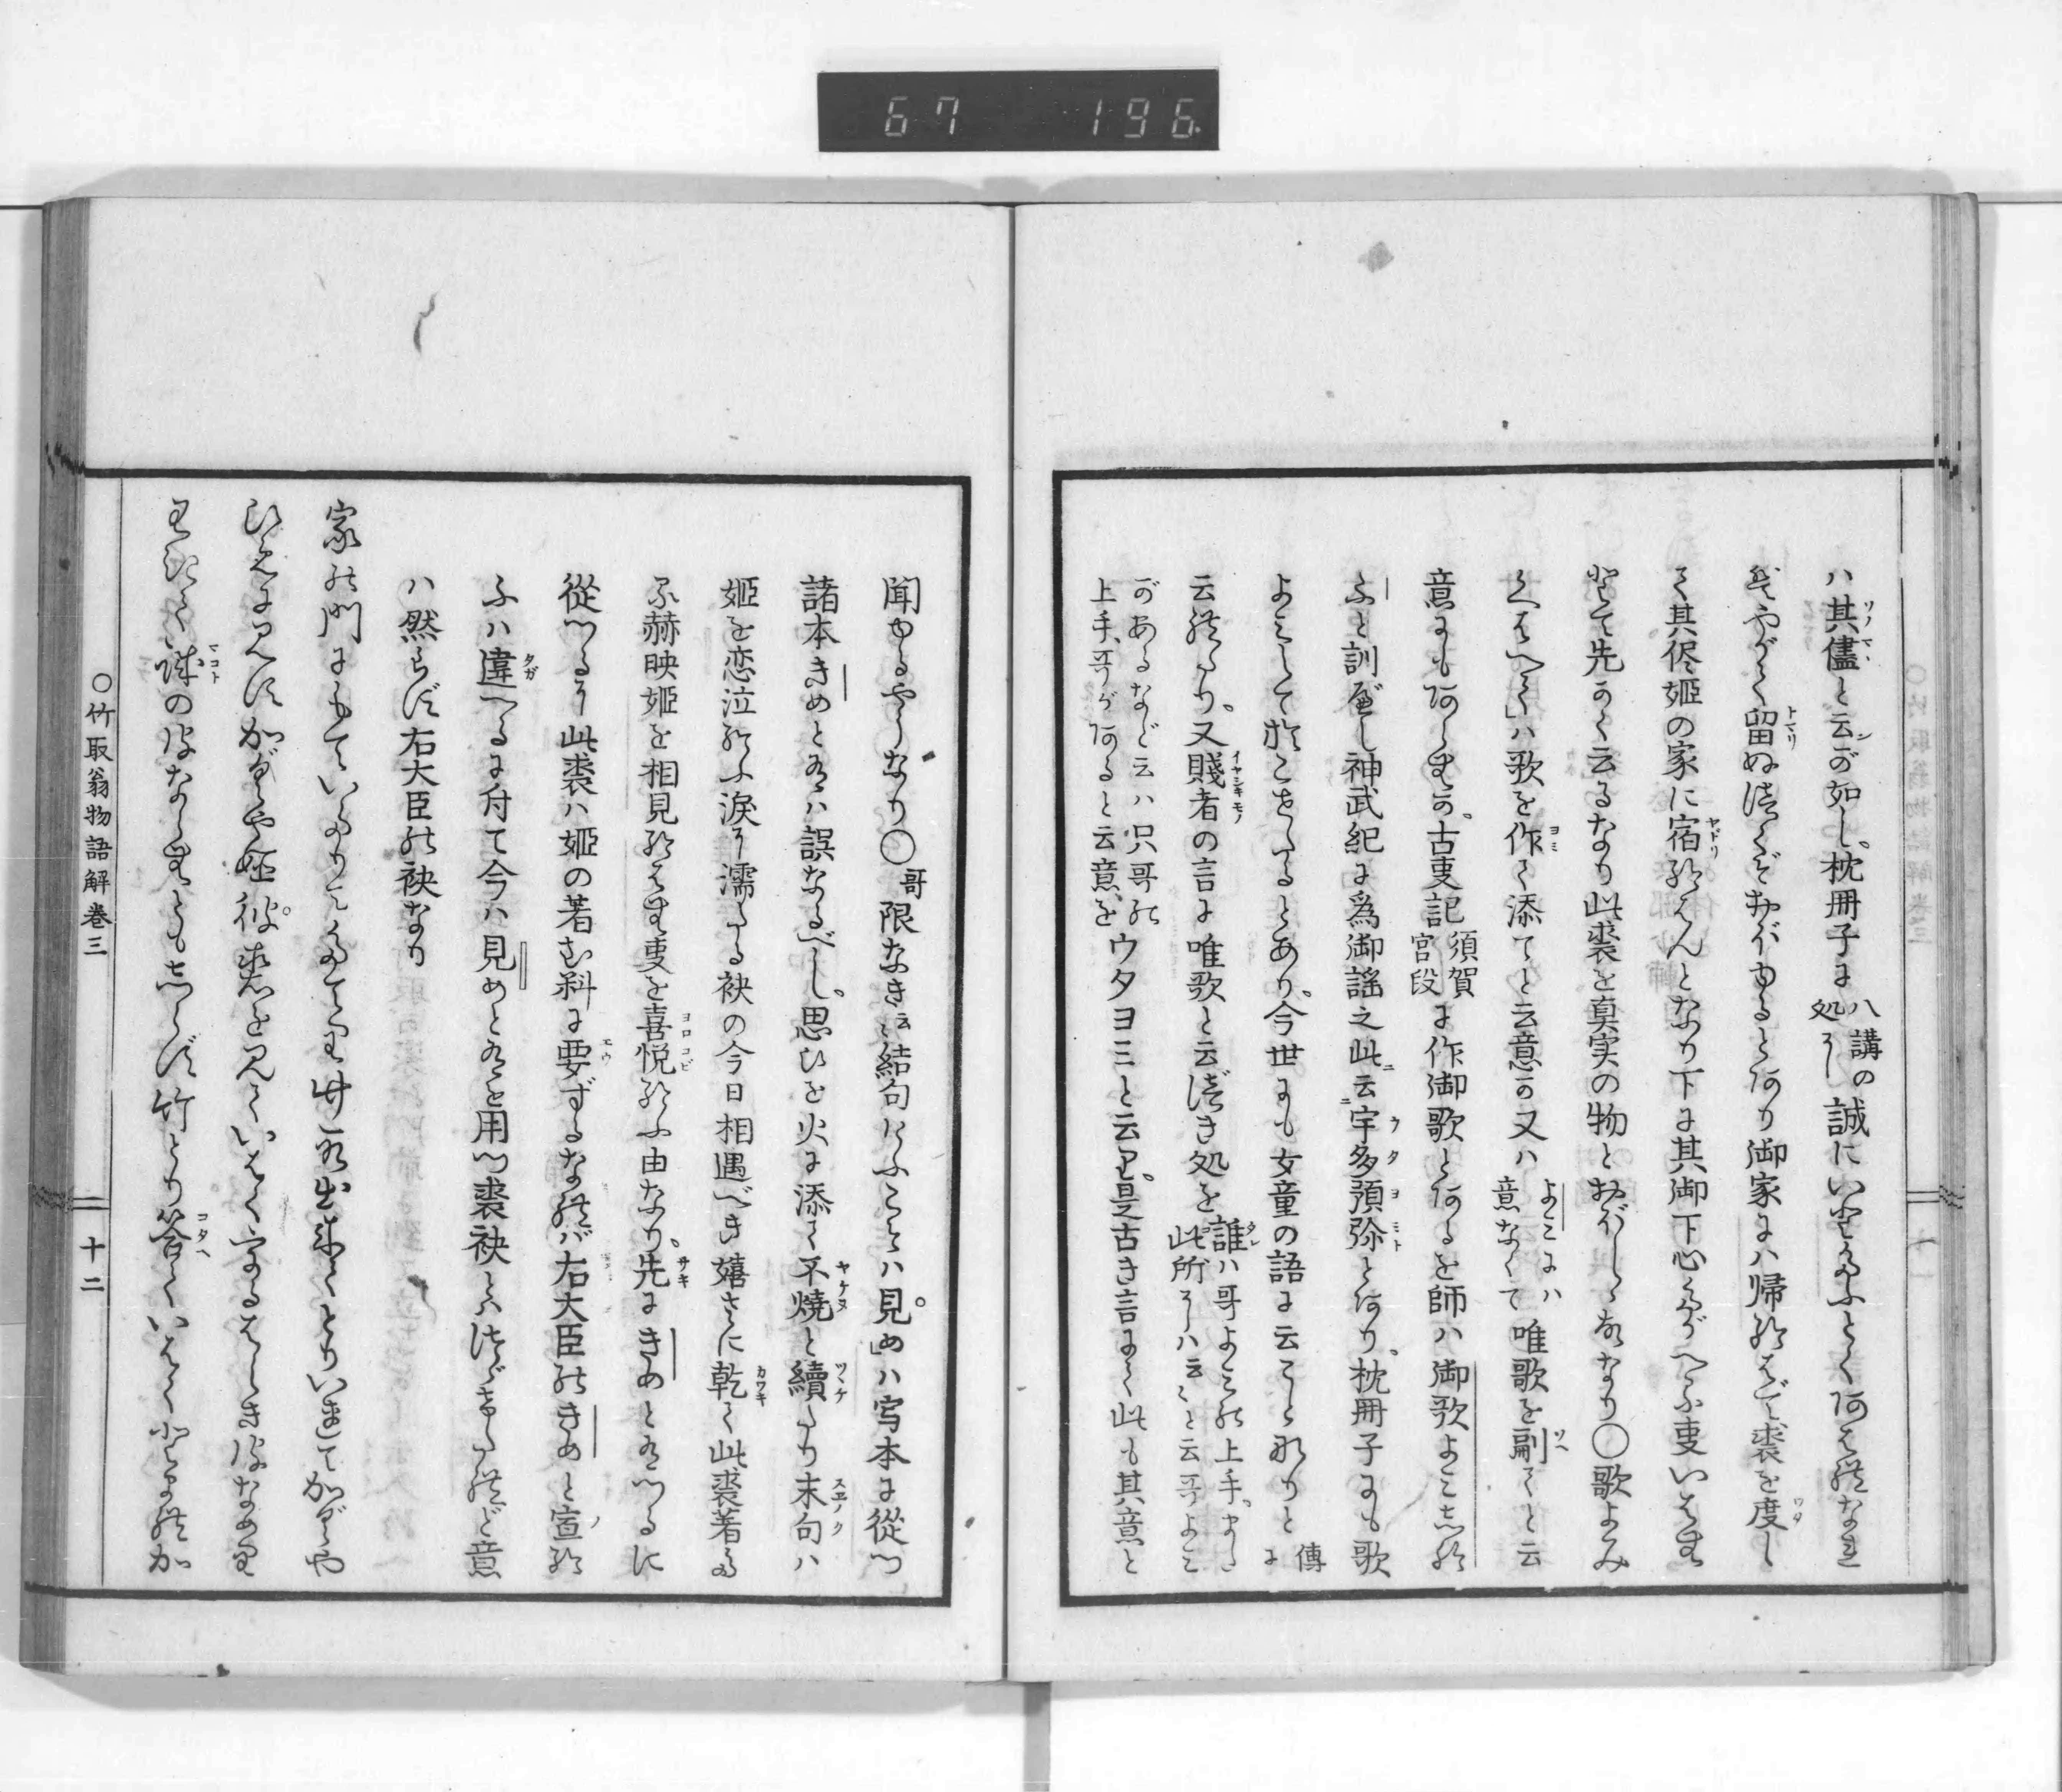 67 196
ハ其儘と云が如し、枕冊子に八講の処に誠にいとたふとくあはれなれ
ばやがて留ぬべくぞおぼゆるとあり御家には帰給はで裘を度し
て其侭姫の家に宿給はんとなり下に其御下心たがへふ事いはむ
とて先かく云るなり此裘を真実の物とおぼしゝ故なり〇歌よみ
くはへてハ歌を作て添てと云意か又ハよみにハ意なくて唯歌を副てと云
意にもあらむか、古事記須賀宮段に作御歌とあるを師ハ御歌よみし給
ふと訓べし神武紀に為御謡之此云宇多預弥とあり、枕冊子にも歌
よみして
おこせたるとあり、今世にも女童の語に云こと也りと傳に
云れたり、又賤者の言に唯歌と云べき処を誰ハ哥よみの上手、
此所にハ云々と云哥よみ
があるなど云ハ只哥の上手、哥があると云意をウタヨミと云り、是古き言にて此も其意と
聞ゆるやうなり〇哥限なき云々結句けふこそハ見めハ写本に従つ
諸本きめとあるハ誤なるべし、思ひを火に添て不焼と續たり末句ハ
姫を恋泣給ふ涙に濡たる袂の今日相遇べき嬉さに乾て此裘着給
ふ赫映姫を相見給はむ事を喜悦給ふ由なり、先にきめとあつるに
従つるに此裘ハ姫の着む料に要ずるなればバ右大臣のきめと宣給
ふハ違へるに付て今ハ見めとあるを用つ裘袂とハつゞきたれど意
ハ然らず右大臣の袂なり
家の門にもていたりてたてり竹取出来てとりいれてかぐや
ひめに見すかぐや姫彼裘を見ていはくうるはしき皮なめり
わきて誠の皮ならむともしらず竹とり答ていはくとまれか
〇竹取翁物語解巻三
十二